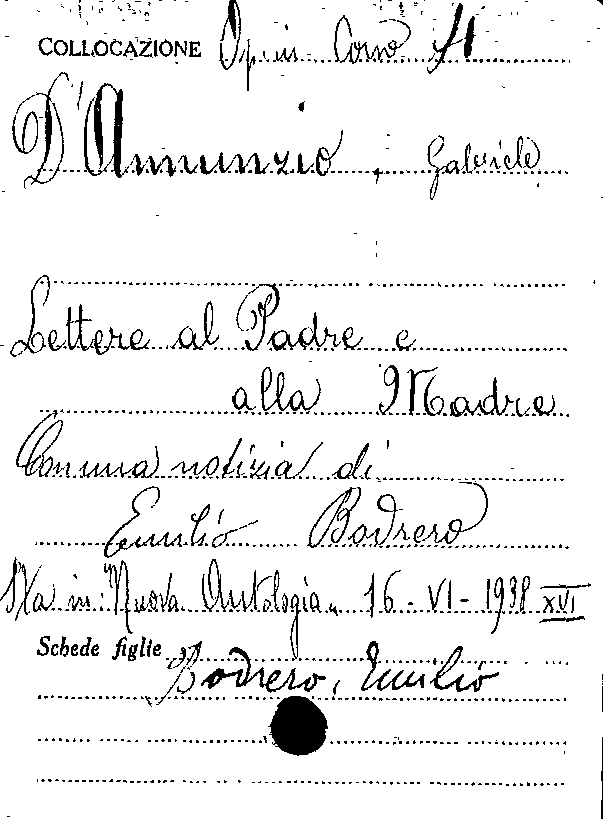 COLLOCAZIONE Opus. Corso 71
D'Annunzio, Gabriele
Lettere al Padre e
alla Madre
Con una notizia di
Emilio Bodrero
in: "Nuova Antologia" 16-VI-1938 XVI
Schede figlie
Bodrero, Emilio